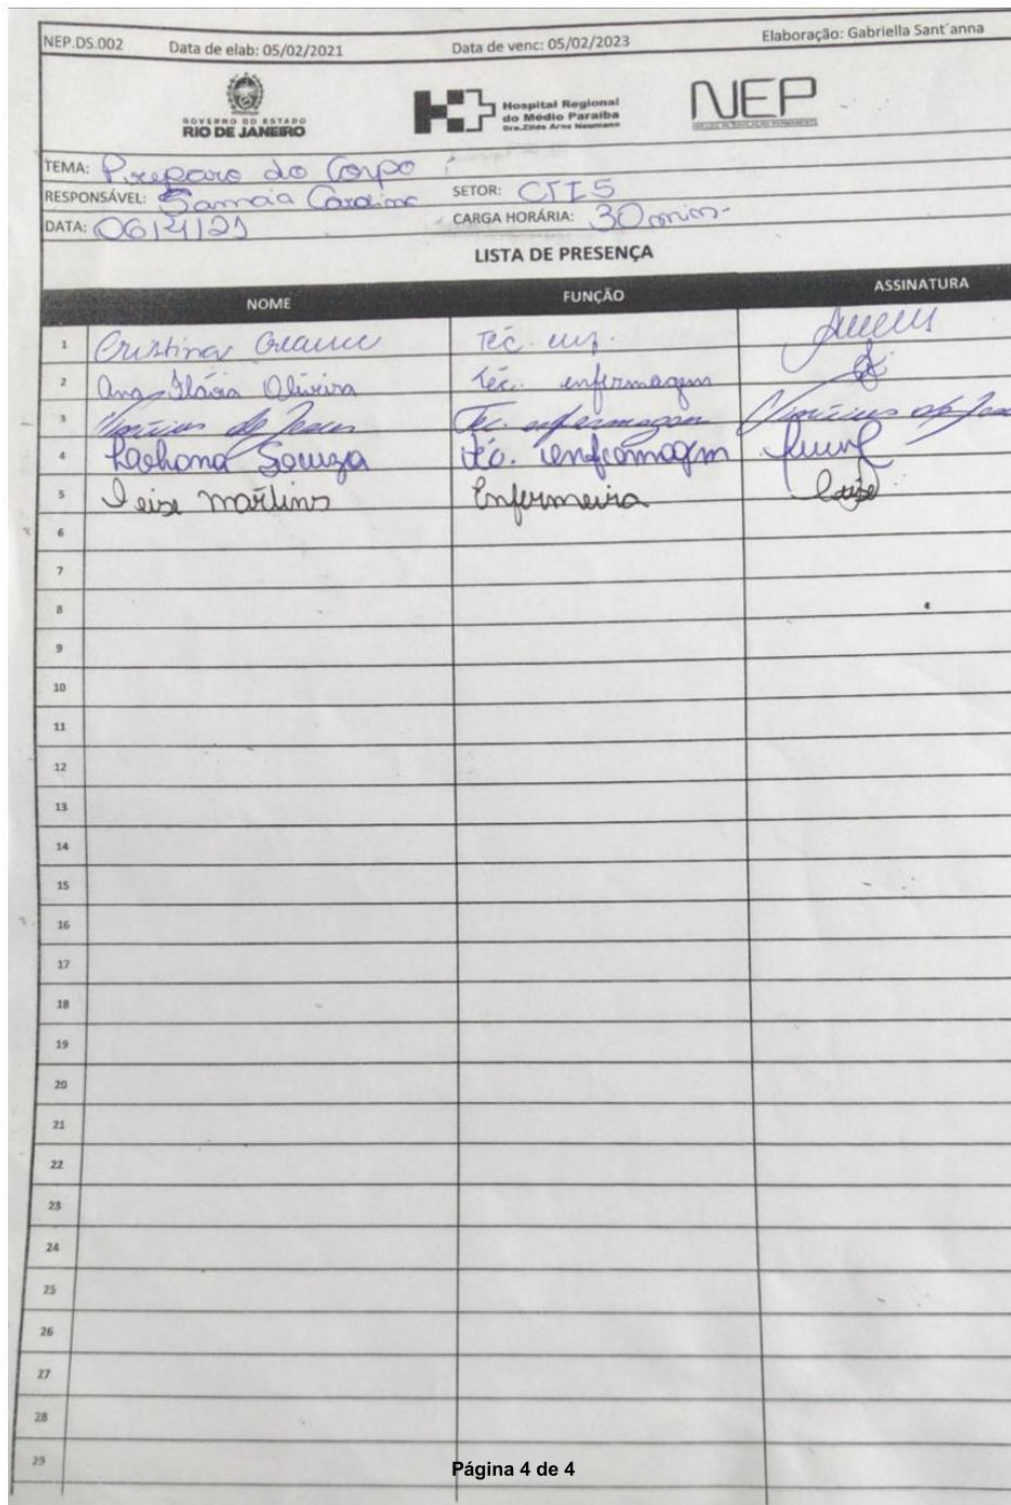 NEP.DS.002 Data de elab: 05/02/2021 Data de venc: 05/02/2023 Elaboração: Gabriella Sant´anna
GOVERNO DO ESTADO
RIO DE JANEIRO
Hospital Regional
do Médio Paraíba
Dra. Zilda Arns Neumann
NEP
NÚCLEO DE EDUCAÇÃO PERMANENTE
TEMA: Preparo do Corpo
RESPONSÁVEL: SETOR: CTI 5
DATA: 06/4/21 CARGA HORÁRIA: 30 min.
LISTA DE PRESENÇA
NOME FUNÇÃO ASSINATURA
1 Cristina Téc. enf.
2 Ana Flávia Oliveira Téc. enfermagem
3 Vinícius de Jesus Téc. enfermagem Vinícius de Jesus
4 Souza téc. enfermagem
5 Leise Martins Enfermeira Leise
6
7
8
9
10
11
12
13
14
15
16
17
18
19
20
21
22
23
24
25
26
27
28
29
Página 4 de 4